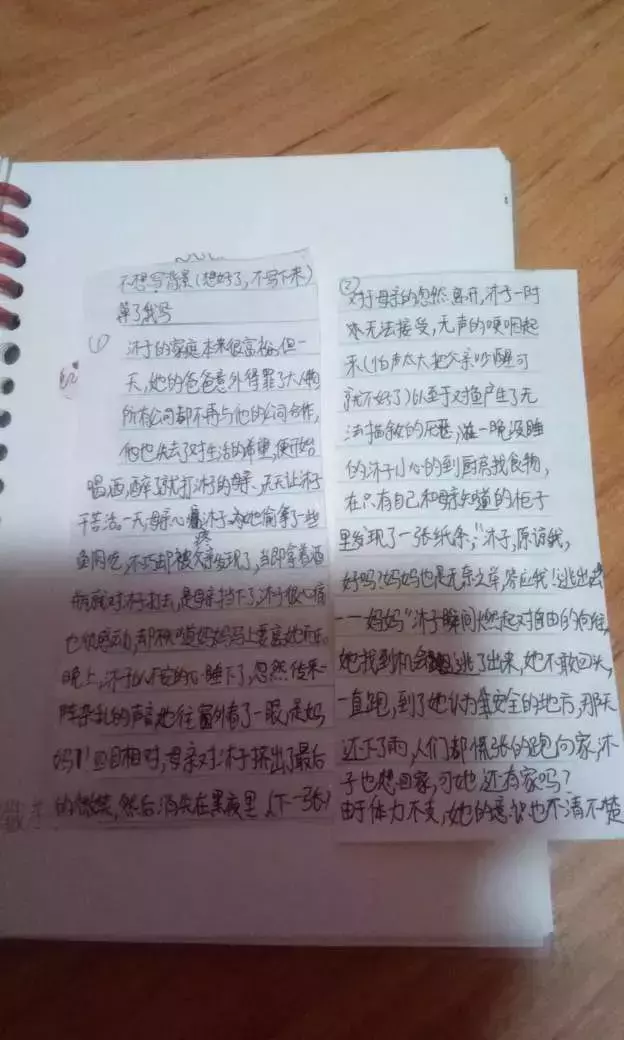 不想写背景(想好了,不写下来)
算了我写
①
沐子的家庭本来很富裕,但一
天,她的爸爸意外得罪了大人物
所有公司都不再与他的公司合作,
他也失去了对生活的希望,便开始
喝酒,醉了就打沐子的母亲,天天让沐子
干苦活,一天,母亲心疼沐子,为她偷拿了一些
鱼肉吃,不巧却被父亲发现了,当即拿着酒
瓶就对沐子打去,是母亲挡下了,沐子很心痛
也很感动,却不知道妈妈马上要离她而去
晚上,沐子以不安的心睡下了,忽然传来一
阵杂乱的声音,她往窗外看了一眼,是妈
妈!四目相对,母亲对沐子挤出了最后
的微笑,然后消失在黑夜里(下一张)
②
对于母亲的忽然离开,沐子一时
无法接受,无声的哽咽起
来(怕声太大把父亲吵醒可
就不好了)以至于对鱼产生了无
法描叙的厌恶,在一晚没睡
的沐子小心的到厨房找食物,
在只有自己和母亲知道的柜子
里发现了一张纸条;"沐子,原谅我,
好吗?妈妈也是无奈之举,答应我!逃出去
——妈妈"沐子瞬间燃起对自由的向往,
她找到机会逃了出来,她不敢回头,
一直跑,到了她认为安全的地方,那天
还下了雨,人们都慌张的跑向家,沐
子也想回家,可她还有家吗?
由于体力不支,她的意识也不清不楚